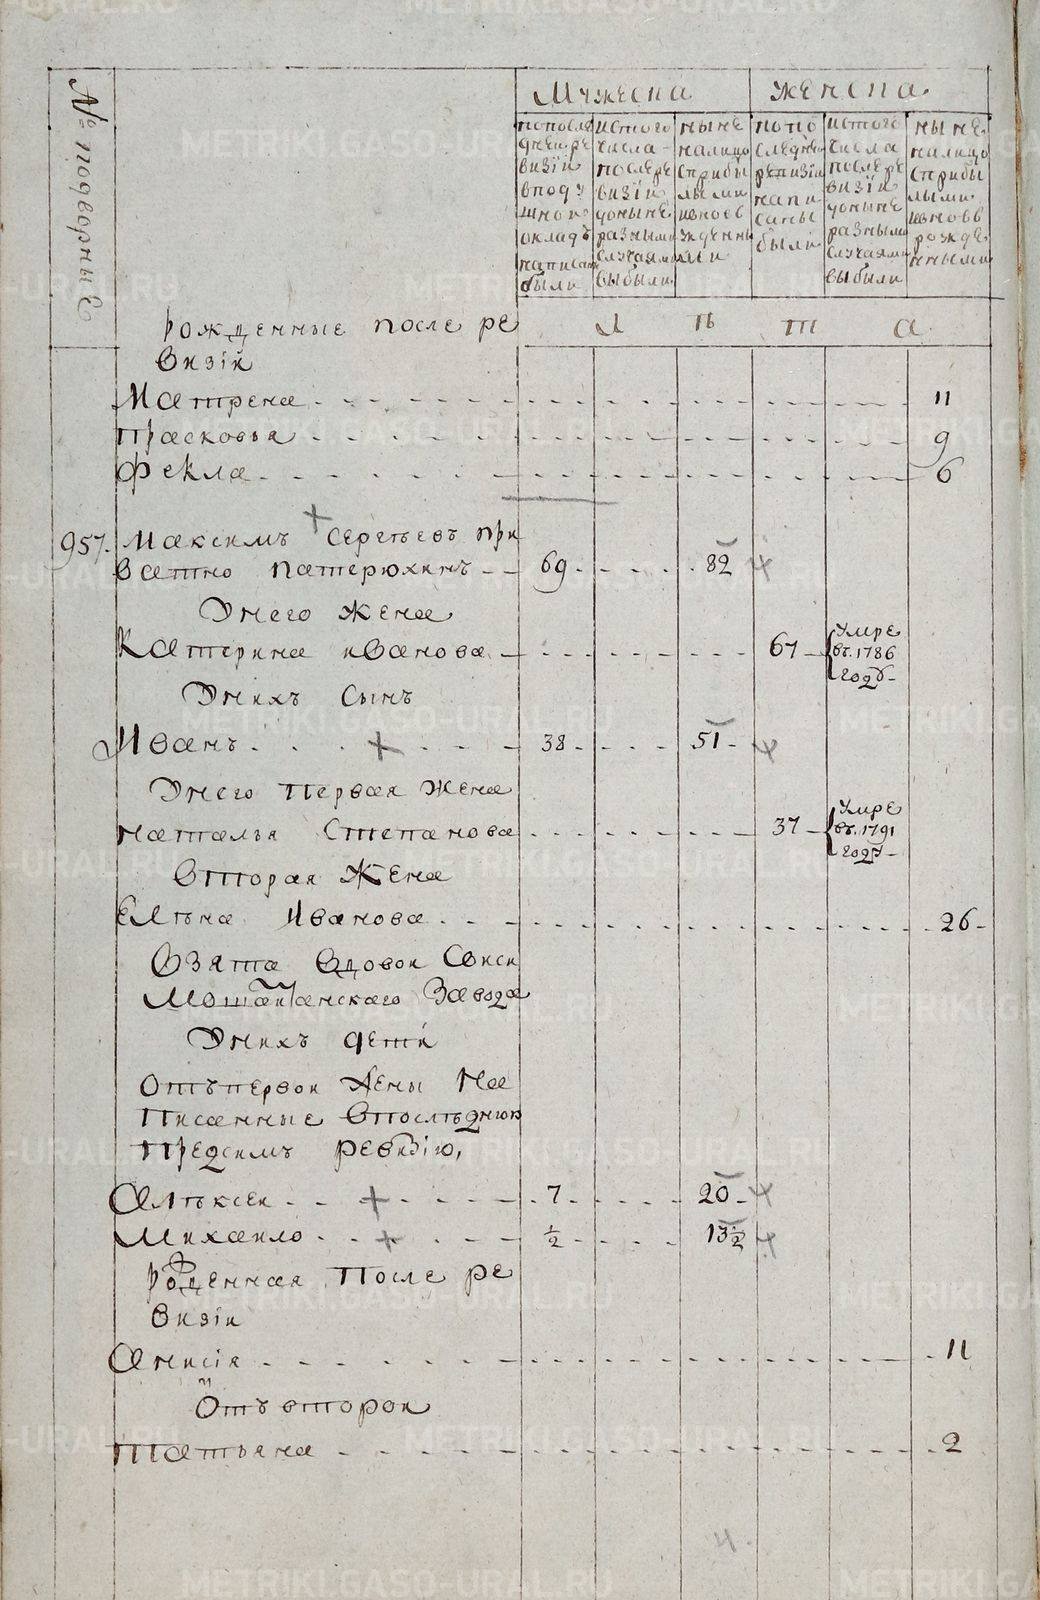 № подворные
Мужеска
женска
попосле
днеи ре
визїи
впод у
шнои
окладъ
написан
были
истого
числа
послере
визїи
доныне
разными
случаями
выбыли
ныне
налицо
сприбы
лыми
ивновь
рожденны
ми
попо
следнеи
ревизїи
напи
саны
были
истого
числа
послере
визїи
доныне
разными
случаями
выбыли
ныне
налицо
сприбы
лыми
ивновь
рожде
нными
л ѣ т а
рожденные после ре
визїи
Матрена 11
прасковья 9
Фекла 6
957. Максимъ Сергѣевъ при
ватно патерюхинъ 69 82
Унего жена
Катерина иванова 67 Умре
въ. 1786
годѣ
Унихъ сынъ
Иванъ 38 51
Унего первая жена
наталья Степанова 37 Умре
въ. 1791
годѣ
Вторая жена
Елѣна Иванова 26
Взята вдовои
Завода
Унихъ дети
отъпервои жены На
писанные впослѣднюю
предсимъ ревизїю,
Алѣксеи 7 20
Михаило ½ 13½
рожденная после ре
визїи
Анисїя 11
Отъ второи
Татьяна 2
4.
METRIKI.GASO-URAL.RU